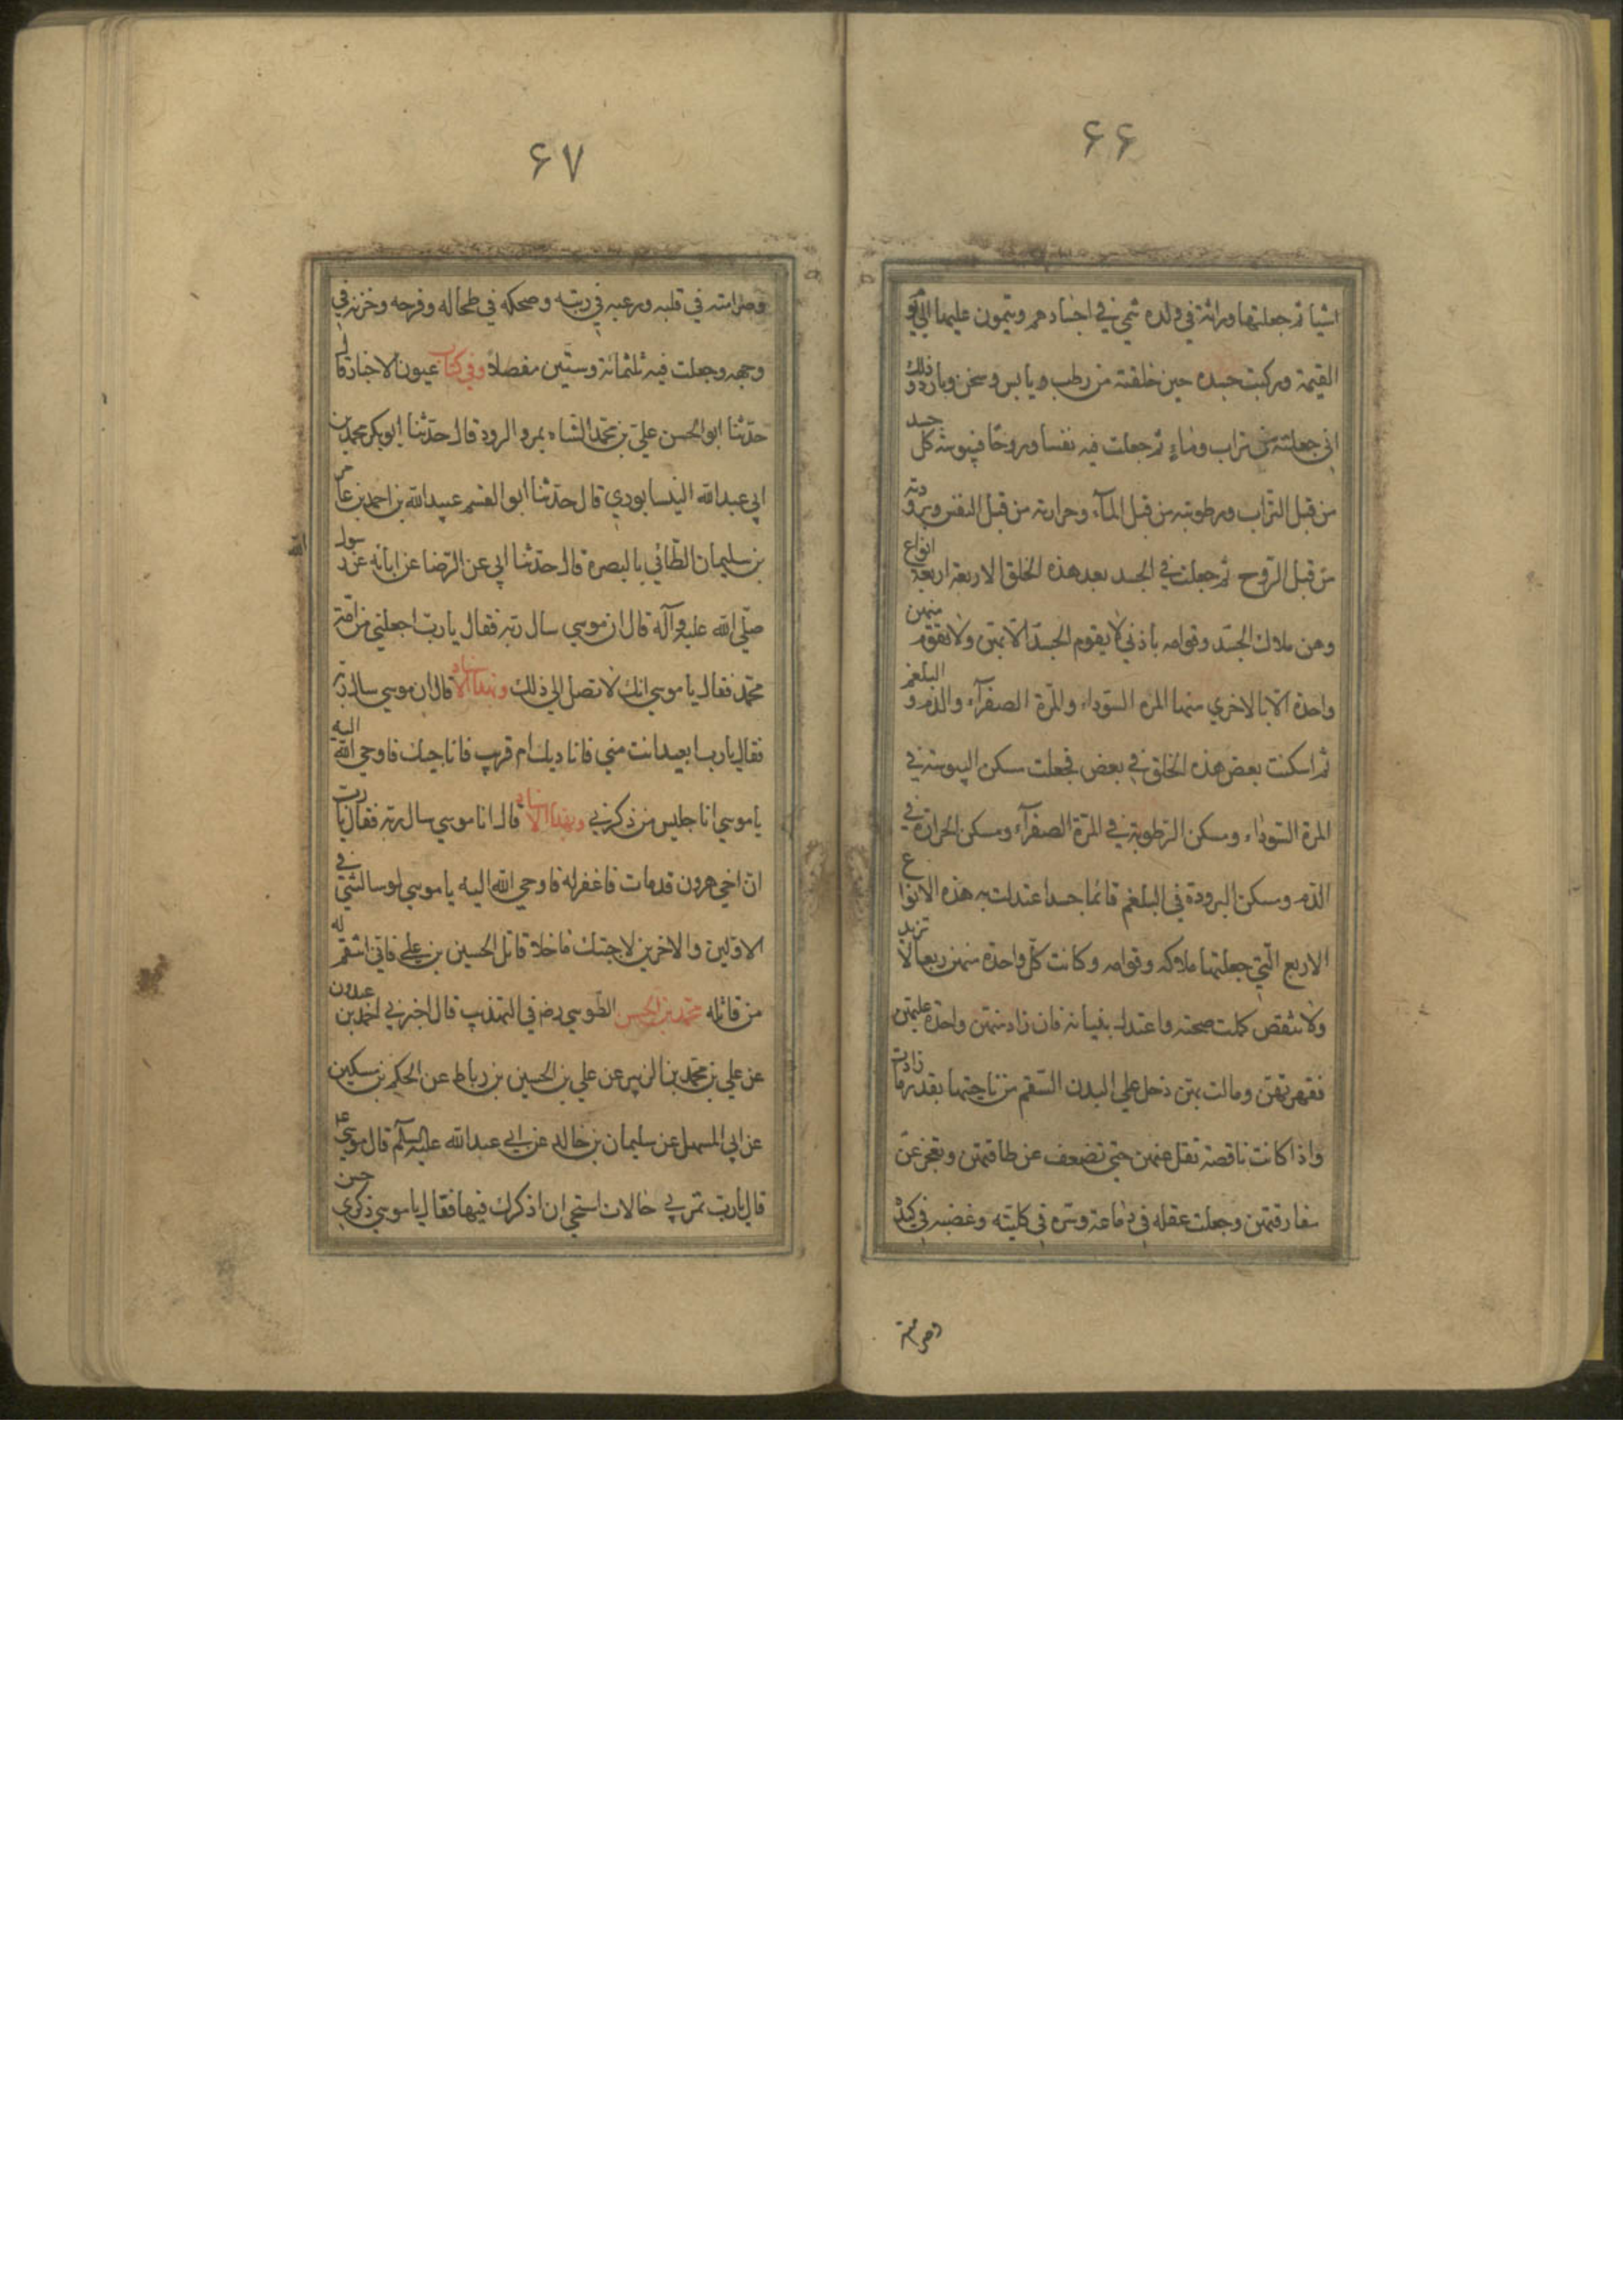 ۶۶
اشيا ثم جعلتها وراثة في ولده تنمي في اجسادهم وينمون عليها الي يو
القيمة وركبت جسده حين خلقته من رطب ويابس وسخن وبارد وذلك
اني جعلته من تراب وماء ثم جعلت فيه نفسا وروحا فيبوسة كل جسد
من قبل التراب ورطوبته من قبل المآء وحرارته من قبل النفس وبرودته
من قبل الروح ثم جعلت في الجسد بعد هذه الخلق الاربعة اربعة انواع
وهن ملاك الجسد وقوامه باذني لا يقوم الجسد الا بهن ولا تقوم منهن
واحدة الا بالاخري منها المرة السوداء والمرة الصفرآء والدم و البلغم
ثم اسكنت بعض هذه الخلق في بعض فجعلت مسكن اليبوسة في
المرة السوداء ومسكن الرطوبة في المرة الصفرآء ومسكن الحرارة في
الدم ومسكن البرودة في البلغم فائما جسد اعتدلت به هذه الانواع
الاربع التي جعلتها ملاكه وقوامه وكانت كل واحدة منهن ربعا لا تزيد
ولا تنقص كملت صحته واعتدل بنيانه فان زاد منهن واحدة عليهن
فقهرتهن ومالت بهن دخل علي البدن السقم من ناحيتها بقدر ما زادت
واذا كانت ناقصة تقل عنهن حتي تضعف عن طاقتهن وتعجز عن
مقارنتهن وجعلت عقله في دماغه وسره في كليته وغضبه في كبده
وصرامته
۶۷
وصرامته في قلبه ورعبه في ريته وضحكه في طحاله وفرحه وحزنه في
وجهه وجعلت فيه ثلثمائة وستين مفصلا وفي كتاب عيون الاخبار قال
حدثنا ابو الحسن علي بن محمد الشاه بمرو الرود قال حدثنا ابو بكر محمد بن
ابي عبد الله النيسابوري قال حدثنا ابو القسم عبيد الله بن احمد بن عامر
بن سليمان الطائي بالبصرة قال حدثنا ابي عن الرضا عن ابائه عن رسول الله
صلي الله عليه وآله قال ان موسي سال ربه فقال يا رب اجعلني من امة
محمد فقال يا موسي انك لا تصل الي ذلك وبهذا الاسناد قال ان موسي سال ربه
فقال يا رب ابعيد انت مني فاناديك ام قريب فاناجيك فاوحي الله اليه
يا موسي انا جليس من ذكرني وبهذا الاسناد قال انا موسي سال ربه فقال يا رب
ان اخي هرون قد مات فاغفر له فاوحي الله اليه يا موسي لو سالتني في
الاولين والاخرين لاجبتك ما خلا قاتل الحسين بن علي فاني انتقم له
من قاتله محمد بن الحسن الطوسي رضه في التهذيب قال اخبرني احمد بن عبدون
عن علي بن محمد بن الزبير عن علي بن الحسين بن رباط عن الحكم بن مسكين
عن ابي المسهل عن سليمان بن خالد عن ابي عبد الله عليه السلم قال موسي
قال يا رب تمر بي حالات استحي ان اذكرك فيها فقال يا موسي ذكري حسن